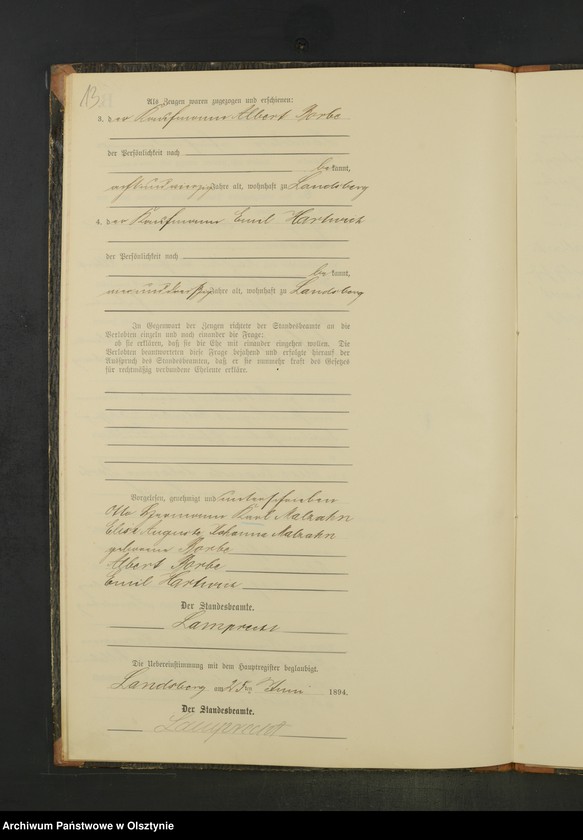 13
Als Zeugen waren zugezogen und erschienen:
3. der Kaufmann Albert Borbe
der Persönlichkeit nach
bekannt,
Jahre alt, wohnhaft zu Landsberg
4. der Kaufmann Emil Hartwich
der Persönlichkeit nach
bekannt,
Jahre alt, wohnhaft zu Landsberg
In Gegenwart der Zeugen richtete der Standesbeamte an die
Verlobten einzeln und nach einander die Frage:
ob sie erklären, daß sie die Ehe mit einander eingehen wollen. Die
Verlobten beantworteten diese Frage bejahend und erfolgte hierauf der
Ausspruch des Standesbeamten, daß er sie nunmehr kraft des Gesetzes
für rechtmäßig verbundene Eheleute erkläre.
Vorgelesen, genehmigt und unterschrieben
Otto Hermann Karl Malzahn
Elise Auguste Johanna Malzahn
geborene Borbe
Albert Borbe
Emil Hartwich
Der Standesbeamte.
Lamprecht
Die Uebereinstimmung mit dem Hauptregister beglaubigt.
Landsberg am ten Juni 1894.
Der Standesbeamte.
Lamprecht
Archiwum Państwowe w Olsztynie